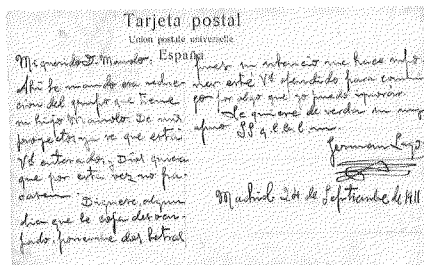 Tarjeta postal
Union postale universelle
España
Mi querido D. Manolo.
Ahi le mando esa reduc-
cion del grupo que tiene
su hijo Manolo. De mis
proyectos ya ve que está
Vd enterado, y Dios quiera
que por esta vez no fra-
casen.
Digame, algun
dia que le coja desocu-
pado, poniendome dos letras
pues su silencio me hace supo-
ner este Vd ofendido para conmi-
go por algo que yo puedo ignorar.
Le quiere de verdad su muy
afmo SS q. l. b. l. m.
German
Madrid 24 de Septiembre de 1911